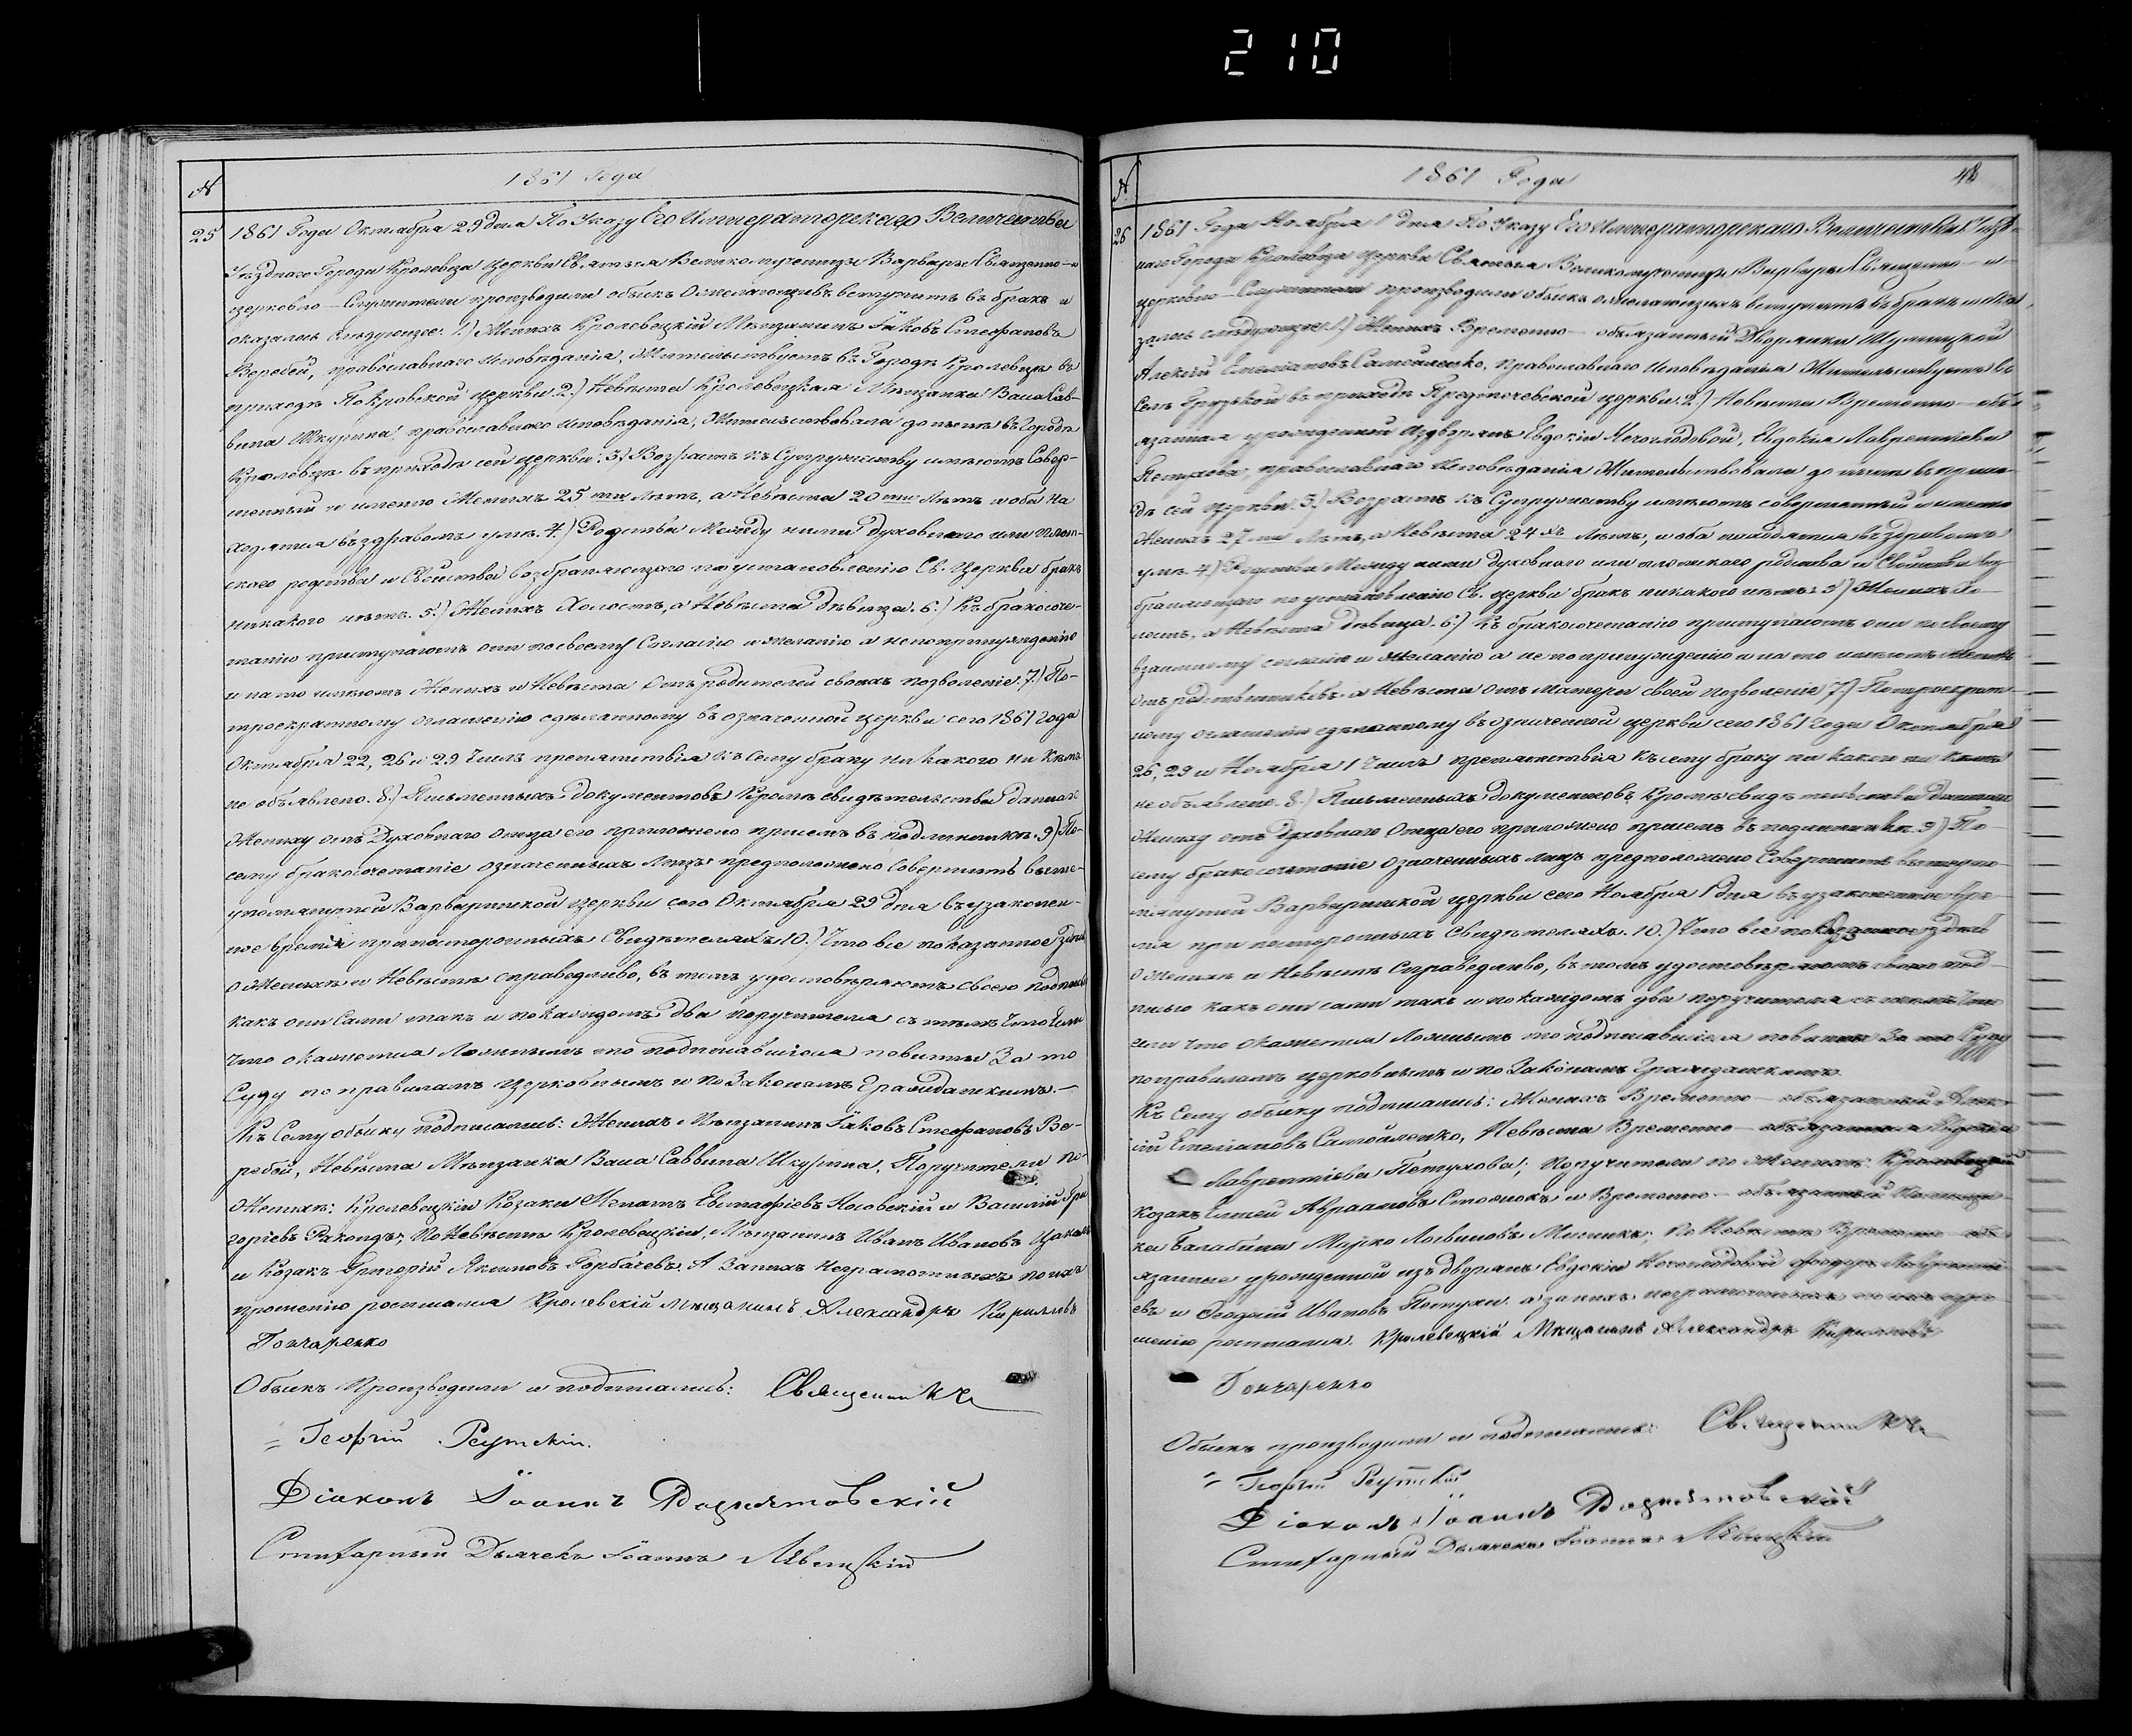 210
№
1861 Года
25
1861 Года Октября 29 дня По Указу Его Императорскаго Величества
Уѣзднаго Города Кролевца церкви Святыя Великомученицы Варвары Священно - и
церковно - Служители производили обыскъ о желающихъ вступить въ бракъ и
оказалось слѣдующее: 1.) Женихъ Кролевецкій Мѣщанинъ Іаковъ Стефановъ
Веребей, православнаго исповѣданія, Жительствуетъ въ Городѣ Кролевцѣ въ
приходѣ Покровской церкви. 2.) Невѣста Кролевецкая Мѣщанка Васса Сав-
вина Шкурина, православнаго исповѣданія, Жительствовала до нынѣ въ Городѣ
Кролевцѣ въ приходѣ сей церкви. 3.) Возрастъ къ Супружеству имѣютъ Совер-
шенный и именно Женихъ 25 ти Лѣтъ, а Невѣста 20 ти Лѣтъ и оба на
ходятся въ здравомъ умѣ. 4.) Родства Между ними духовнаго или плот-
скаго родства и Свойства возбраняющаго по установленію Св. Церкви бракъ
никакого нѣтъ. 5.) Женихъ Холостъ, а Невѣста Дѣвица. 6.) Къ бракосоче-
танію приступаютъ они по своему Согласію и желанію а не по принужденію
и на то имѣютъ Женихъ и Невѣста Отъ родителей своихъ позволеніе. 7.) По-
троекратному оглашенію сдѣланному въ означенной церкви сего 1861 года
Октября 22, 26 и 29 Чиселъ препятствія къ Сему браку никакого ни кѣмъ
не объявлено. 8.) Письменныхъ документовъ Кромѣ свидѣтельства даннаго
Жениху отъ Духовнаго отца его приложено при семъ въ подлинникѣ. 9.) По-
сему бракосочетаніе означенныхъ Лицъ предположено Совершить въ выше-
упомянутой Варваринской церкви сего Октября 29 дня въ узаконен-
ное время при постороннихъ Свидѣтеляхъ. 10.) Что все показанное здѣсь
о Женихѣ и Невѣстѣ справедливо, въ томъ удостовѣряютъ своею подписью
какъ они Сами такъ и по каждомъ два поручителя съ тѣмъ что если
что окажется Ложнымъ то подписавшіеся повинны За то
Суду по правиламъ Церковнымъ и по Законамъ Гражданскимъ. -
Къ Сему обыску подписались: Женихъ Мѣщанинъ Іаковъ Стефановъ Ве-
ребей, Невѣста Мѣщанка Васса Саввина Шкурина, Поручители по
Женихѣ: Кролевецкіе Козаки Игнатъ Евстафіевъ Носовскій и Василій Гри
горіевъ Ракондъ, По Невѣстѣ Кролевецкіи Мѣщанинъ Иванъ Ивановъ
и Козакъ Григорій Якимовъ Горбачевъ. А За нихъ неграмотныхъ по ихъ
прошенію росписался Кролевскій мѣщанинъ Александръ Кириловъ
Гончаренко
Обыскъ Производили и подписались: Священникъ
Георгій Реутскій.
Діаконъ Іоаннъ
Стихарный Дьячекъ Іоаннъ Левицкій
№
1861 Года
48
26
1861 Года Ноября 1 дня По Указу Его Императорскаго Величества Уѣзд-
наго Города Кролевца церкви Святыя Великомученицы Варвары Священно - и -
церковно - Служители производили обыскъ о желающихъ вступить въ бракъ и ока
залось слѣдующее: 1.) Женихъ Временно - обязанный Дворянки
Алексій Емеліановъ Самойленко, православнаго исповѣданія Жительствуетъ въ
Селѣ Грузской въ приходѣ Предотечевской церкви. 2.) Невѣста Временно - обя
занная урожденной изъ дворянъ Евдокіи, Евдокія Лаврентіева
Петухова, православнаго исповѣданія Жительствовала до нынѣ въ прихо-
дѣ сей церкви. 3.) Возрастъ къ Супружеству имѣютъ совершенный и именно
Женихъ 27 ми Лѣтъ, а Невѣста 24 хъ Лѣтъ, и оба находятся въ здравомъ
умѣ. 4.) Родства Между ними духовнаго или плотскаго родства и Свойства воз
браняющаго по установленію Св. церкви бракъ никакого нѣтъ. 5.) Женихъ Хо-
лостъ, а Невѣста Дѣвица. 6.) Къ бракосочетанію приступаютъ они по своему
взаимному согласію и желанію а не по принужденію и на то имѣютъ Женихъ
отъ родственниковъ а Невѣста отъ Матери своей позволеніе 7.) По троекрат-
ному оглашенію сдѣланному въ означенной церкви сего 1861 года Октября
26, 29 и Ноября 1 Чиселъ препятствія къ сему браку никакого ни кѣмъ
не объявлено. 8.) Письменныхъ документовъ Кромѣ свидѣтельства даннаго
Жениху отъ Духовнаго Отца его приложено при семъ въ подлинникѣ. 9.) По
сему бракосочетаніе означенныхъ лицъ предположено Совершить въ
мянутой Варваринской церкви сего Ноября 1 дня въ узаконенное вре-
мя при постороннихъ свидѣтеляхъ. 10.) Что все показанное здѣсь
о Женихѣ и Невѣстѣ Справедливо, въ томъ удостовѣряютъ своею под-
писью какъ они сами такъ и по каждомъ два поручителя съ тѣмъ что
если что окажется Ложнымъ то подписавшіеся повинны За то Суду
по правиламъ церковнымъ и по Законамъ Гражданскимъ.
Къ Сему обыску подписались: Женихъ Временно - обязанный Алек-
сій Емеліановъ Самойленко, Невѣста Временно - обязанная Евдокія
Лаврентіева Петухова; Поручители по Женихѣ: Кролевецкій
козакъ Елисей Авраамовъ и Временно - обязанный
Балабина Марко Логвиновъ; По Невѣстѣ Временно - обя
занные урожденной изъ дворянъ Евдокіи Федоръ Лавренті
евъ и Феодосій Ивановъ Петухи. а за нихъ неграмотныхъ по ихъ про
шенію росписался. Кролевецкій Мѣщанинъ Александръ Кириловъ
Гончаренко
Обыскъ производили и подписались: Священникъ
Георгій Реутскій
Діаконъ Іоаннъ
Стихарный Дьячекъ Іоаннъ Левицкій